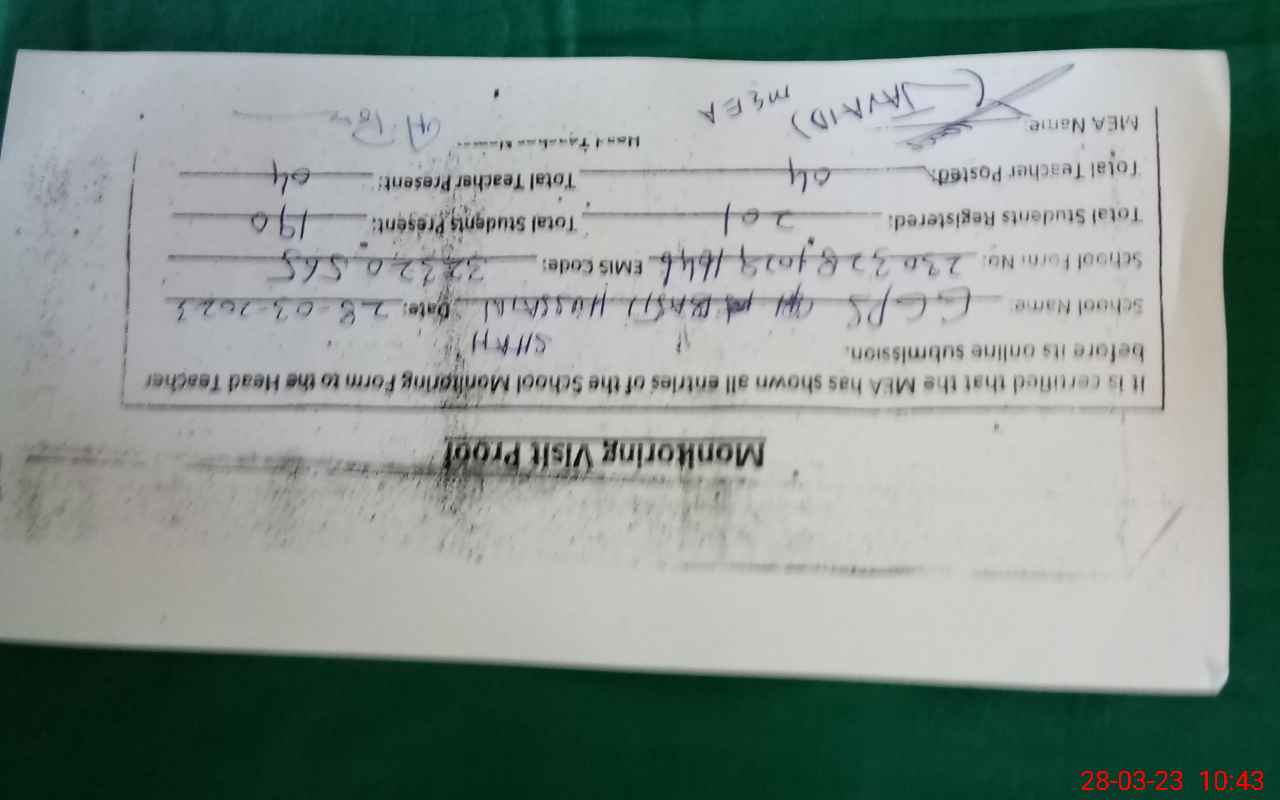 Monitoring Visit Proof
It is certified that the MEA has shown all entries of the School Monitoring Form to the Head Teacher
before its online submission.
SHAH
School Name: GGPS BASTI HUSSAIN Date: 28-03-2023
School Form No: EMIS Code: 32320565
Total Students Registered: 201 Total Students Present: 190
Total Teacher Posted: 04 Total Teacher Present: 04
MEA Name: (JAVAID) MEA
28-03-23 10:43